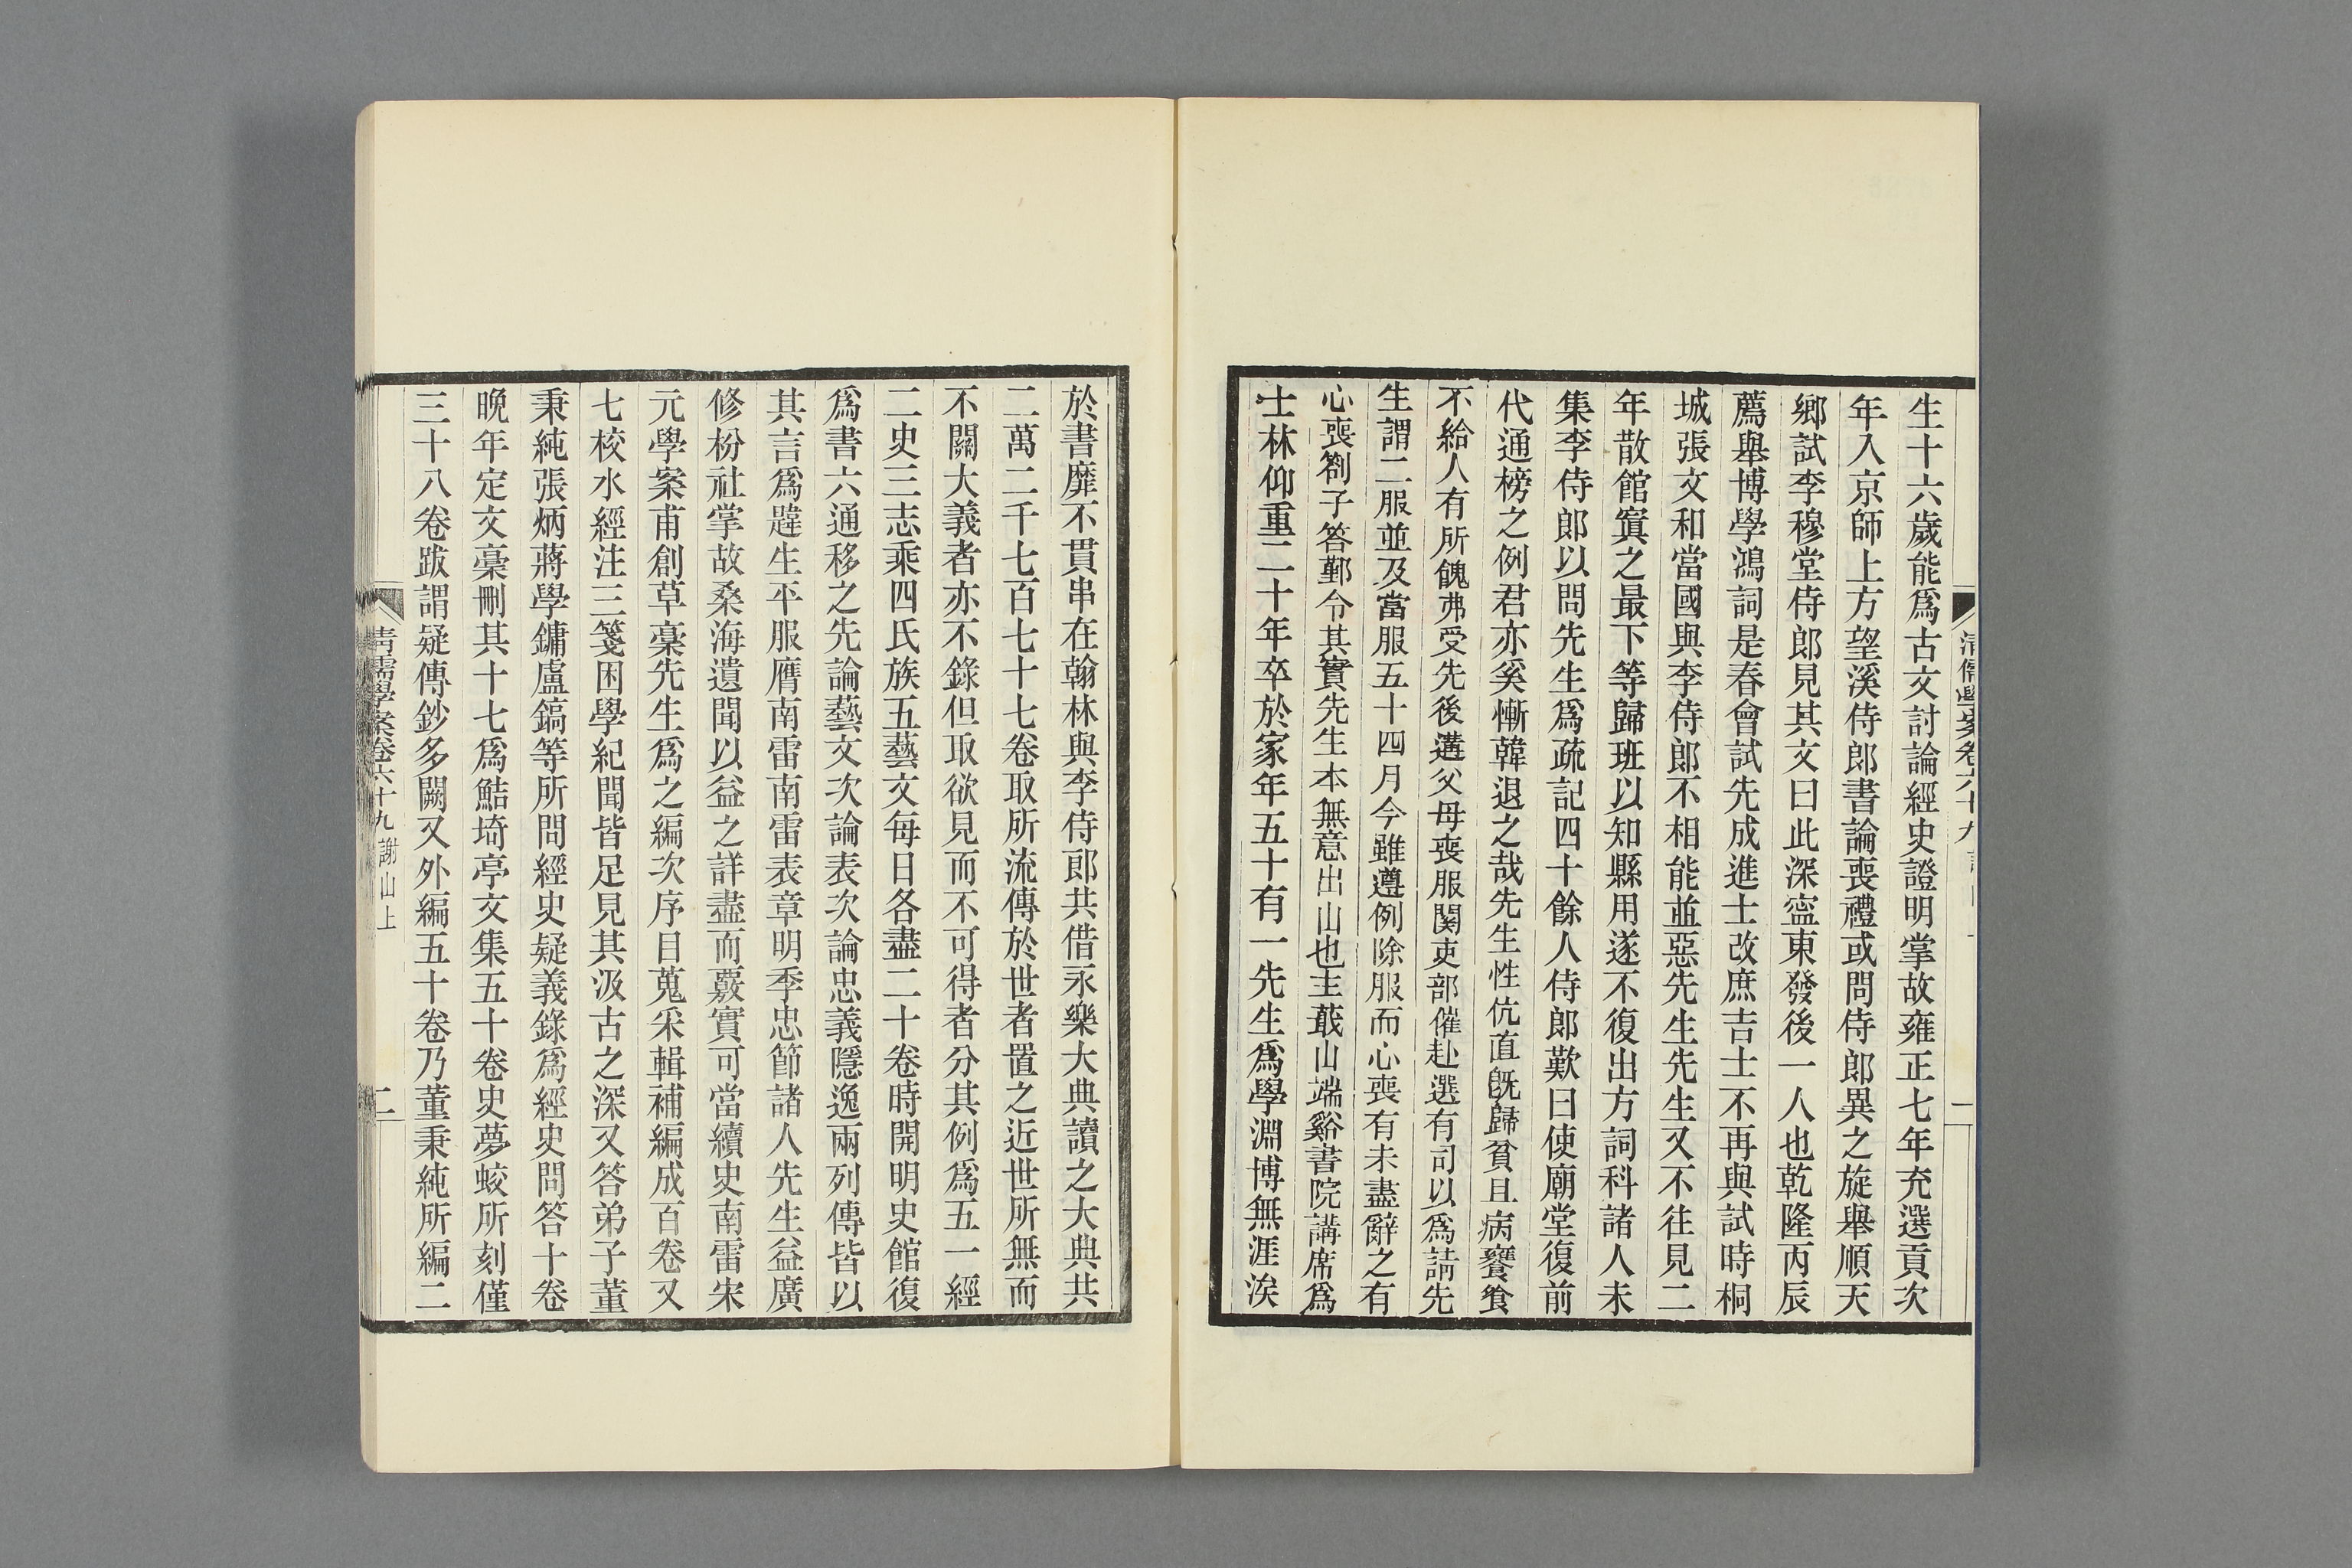 生十六歲能爲古文討論經史證明掌故雍正七年充選貢次
年入京師上方望溪侍郎書論喪禮或問侍郎異之旋舉順天
鄉試李穆堂侍郎見其文曰此深寍東發後一人也乾隆丙辰
薦舉博學鴻詞是春會試先成進士改庶吉士不再與試時桐
城張文和當國與李侍郎不相能並惡先生先生又不往見二
年散館寘之最下等歸班以知縣用遂不復出方詞科諸人未
集李侍郎以問先生爲疏記四十餘人侍郎歎曰使廟堂復前
代通榜之例君亦奚慚韓退之哉先生性伉直旣歸貧且病饔飧
不給人有所餽弗受先後遘父母喪服闋吏部催赴選有司以爲請先
生謂二服並及當服五十四月今雖遵例除服而心喪有未盡辭之有
心喪劄子答鄞令其實先生本無意出山也主蕺山端谿書院講席爲
士林仰重二十年卒於家年五十有一先生爲學淵博無涯涘
於書靡不貫串在翰林與李侍郎共借永樂大典讀之大典共
二萬二千七百七十七卷取所流傳於世者置之近世所無而
不關大義者亦不錄但取欲見而不可得者分其例爲五一經
二史三志乘四氏族五藝文每日各盡二十卷時開明史館復
爲書六通移之先論藝文次論表次論忠義隱逸兩列傳皆以
其言爲韙生平服膺南雷南雷表章明季忠節諸人先生益廣
修枌社掌故桑海遺聞以益之詳盡而覈實可當續史南雷宋
元學案甫創草稾先生爲之編次序目蒐采輯補編成百卷又
七校水經注三箋困學紀聞皆足見其汲古之深又答弟子董
秉純張炳蔣學鏞盧鎬等所問經史疑義錄爲經史問答十卷
晚年定文稾刪其十七爲鮚埼亭文集五十卷史夢蛟所刻僅
三十八卷跋謂疑傳鈔多闕又外編五十卷乃董秉純所編二
清儒學案卷六十九 謝山上
二